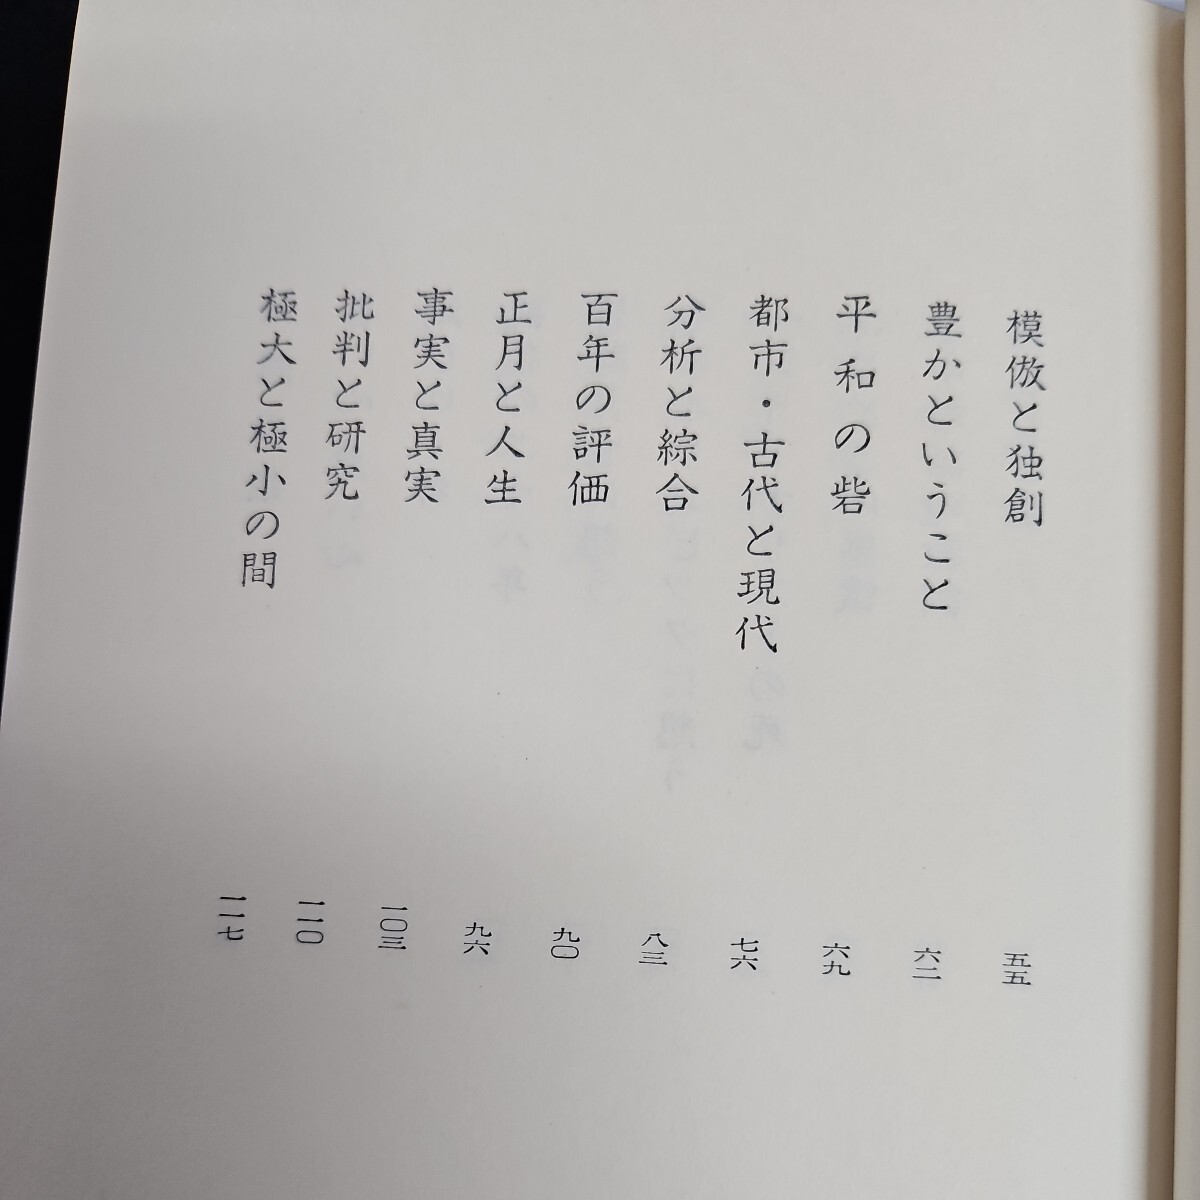 模倣と独創 五五
豊かということ 六二
平和の砦 六九
都市・古代と現代 七六
分析と綜合 八三
百年の評価 九〇
正月と人生 九六
事実と真実 一〇三
批判と研究 一一〇
極大と極小の間 一一七